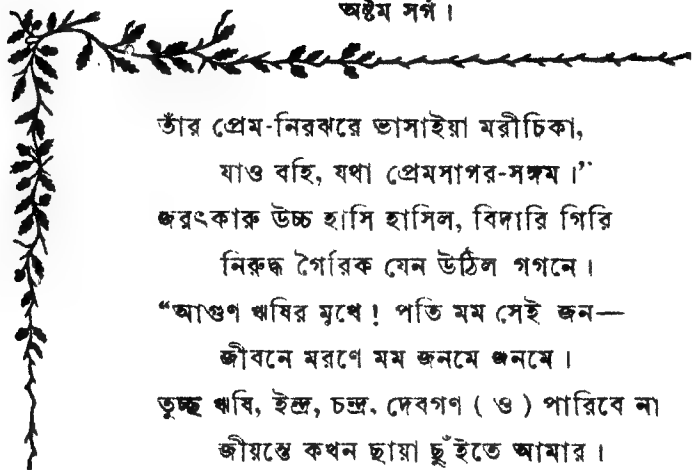 অষ্টম সর্গ।
তাঁর প্রেম-নিরঝরে ভাসাইয়া মরীচিকা,
যাও বহি, যথা প্রেমসাগর-সঙ্গম।”
জরৎকারু উচ্চ হাসি হাসিল, বিদারি গিরি
নিরুদ্ধ গৈরিক যেন উঠিল গগনে।
“আগুণ ঋষির মুখে! পতি মম সেই জন—
জীবনে মরণে মম জনমে জনমে।
তুচ্ছ ঋষি, ইন্দ্র, চন্দ্র, দেবগণ ( ও ) পারিবে না
জীয়ন্তে কখন ছায়া ছুঁইতে আমার।